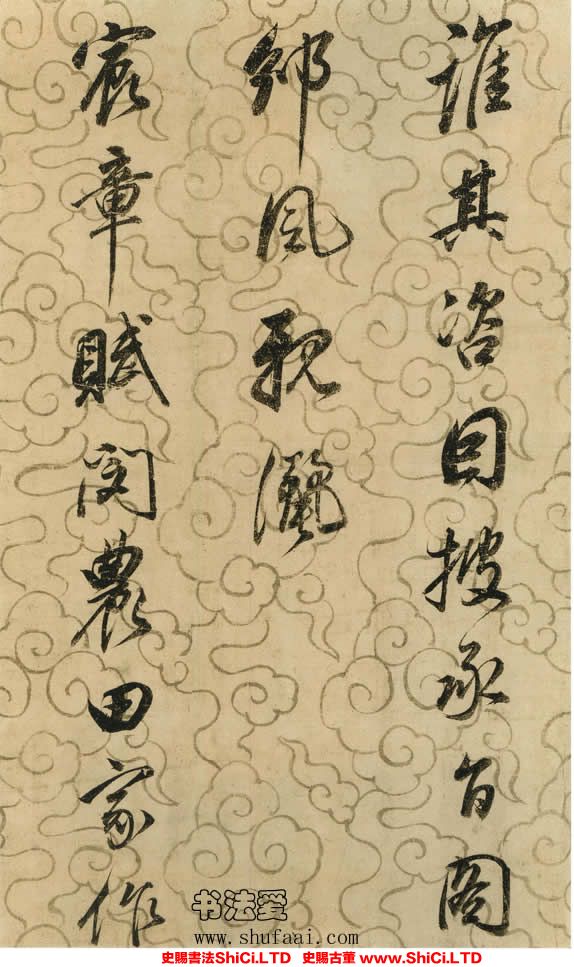 誰其咨目披承旨圖
邠風親灑
宸章賦閔農田家作
书法爱
www.shufaai.com
史賜書法ShiCi.LTD 史賜古董 www.ShiCi.LTD